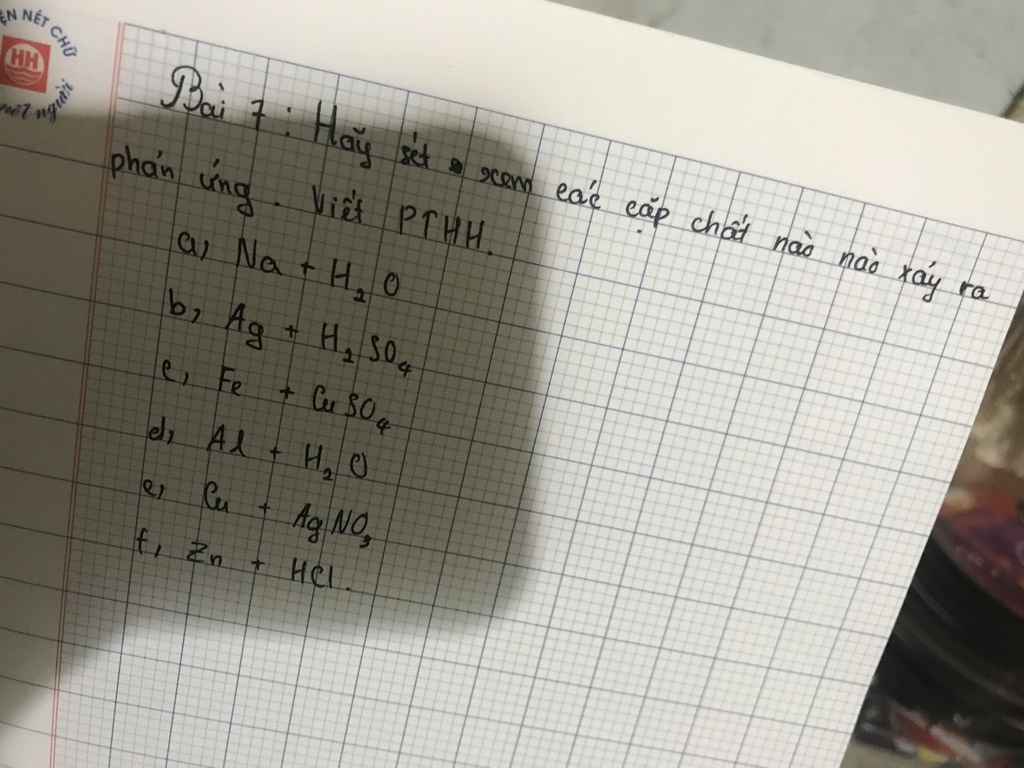 ỆN NÉT CHỮ
HH
nết người
Bài 7: Hãy sét xem các cặp chất nào nào xảy ra
phản ứng. Viết PTHH.
a, Na + H₂O
b, Ag + H₂SO₄
c, Fe + CuSO₄
d, Al + H₂O
e, Cu + AgNO₃
f, Zn + HCl.